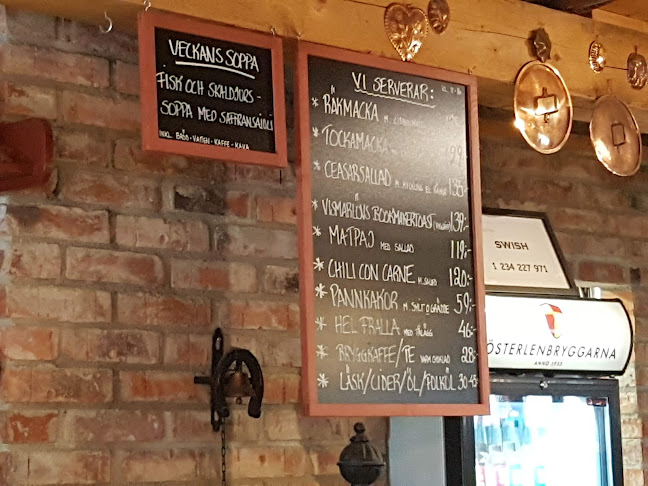 VECKANS SOPPA
FISK OCH SKALDJURS-
SOPPA MED SAFFRANSAIOLI
INKL. BRÖD - VATTEN - KAFFE - KAKA
VI SERVERAR:
* RÄKMACKA M.
* TOCKAMACKA 99:-
* CEASARSALLAD M. KYCKLING EL. RÄKOR 135:-
* VISMARLÖVS BOOKMAKERTOAST 139:-
* MATPAJ MED SALLAD 119:-
* CHILI CON CARNE M. SALLAD 120:-
* PANNKAKOR M. SYLT O GRÄDDE 59:-
* HEL FRALLA MED PÅLÄGG 46:-
* BRYGGKAFFE/TE VARM CHOKLAD 28:-
* LÄSK/CIDER/ÖL/FOLKÖL 30-45:-
SWISH
1 234 227 971
ÖSTERLENBRYGGARNA
ANNO